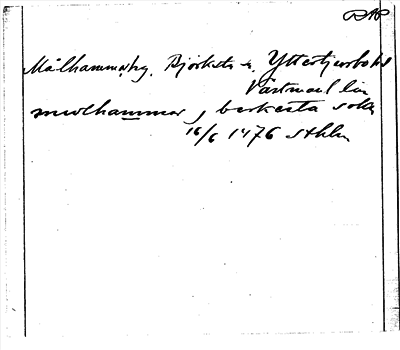 RAP
Målhammar, hg. Björksta s. Yttertjurbo hd
Västmanl. län
mwlhammar, berkesta sokn
16/6 1476 Sthlm